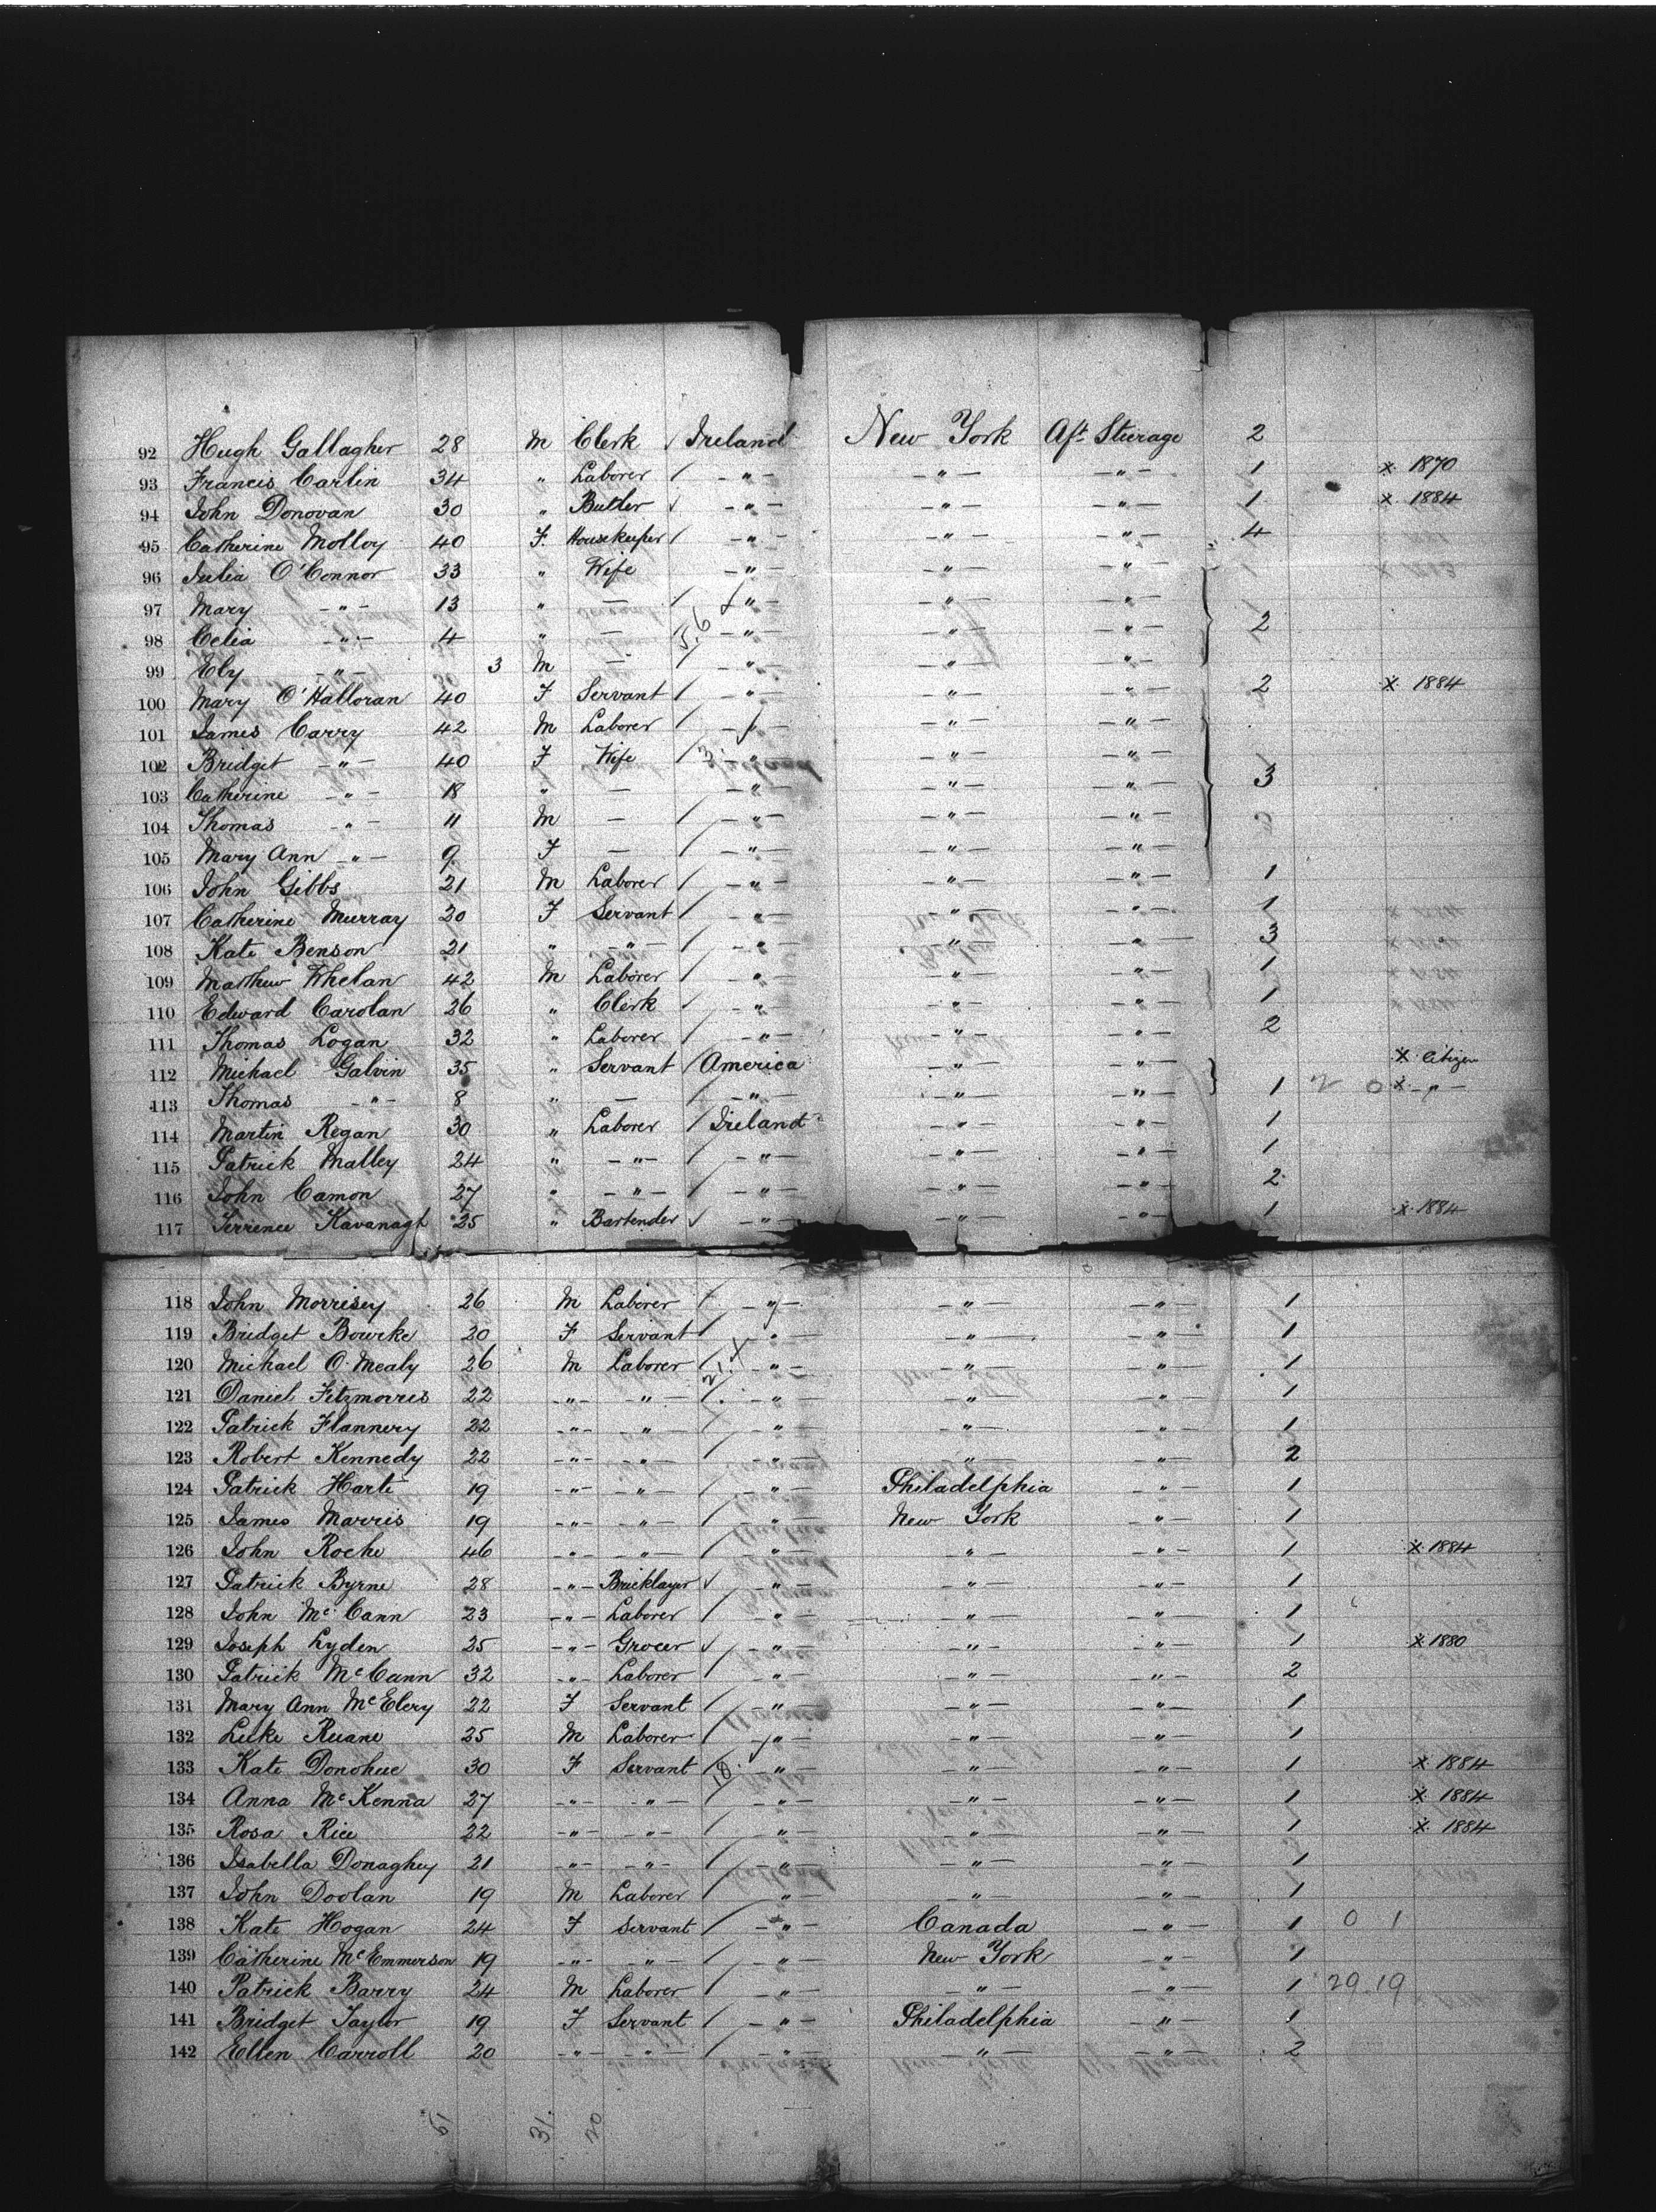 92 Hugh Gallagher 28 M Clerk Ireland New York Aft Sturage 2
93 Francis Carlin 34 " Laborer " " " 1 x 1870
94 John Donovan 30 " Butler " " " 1 x 1884
95 Catherine Molloy 40 F. Housekeeper " " " 4
96 Julia O'Connor 33 " Wife " " "
97 Mary " 13 " — " " "
98 Celia " 4 " — " " " 2
99 Ely " 3 M — " " "
100 Mary O'Halloran 40 F Servant " " " 2 x 1884
101 James Carry 42 M Laborer " " "
102 Bridget " 40 F Wife " " "
103 Catherine " 18 " — " " " 3
104 Thomas " 11 M — " " "
105 Mary Ann " 9 F — " " "
106 John Gibbs 21 M Laborer " " " 1
107 Catherine Murray 20 F Servant " " " 1
108 Kate Benson 21 " " " " " 3
109 Matthew Whelan 42 M Laborer " " " 1
110 Edward Carolan 26 " Clerk " " " 1
111 Thomas Logan 32 " Laborer " " " 2
112 Michael Galvin 35 " Servant America " " x Citizen
113 Thomas " 8 " — " " " 1 2 0 x "
114 Martin Regan 30 " Laborer Ireland " " 1
115 Patrick Malley 24 " " " " " 1
116 John Camon 27 " " " " " 2
117 Terrence Kavanagh 25 " Bartender " " " 1 x 1884
118 John Morrisey 26 M Laborer " " " 1
119 Bridget Bourke 20 F Servant " " " 1
120 Michael O'Mealy 26 M Laborer " " " 1
121 Daniel Fitzmorris 22 " " " " " 1
122 Patrick Flannery 22 " " " " " 1
123 Robert Kennedy 22 " " " " " 2
124 Patrick Harte 19 " " " Philadelphia " 1
125 James Marris 19 " " " New York " 1
126 John Roche 46 " " " " " 1 x 1884
127 Patrick Byrne 28 " Bricklayer " " " 1
128 John McCann 23 " Laborer " " " 1
129 Joseph Lyden 25 " Grocer " " " 1 x 1880
130 Patrick McCann 32 " Laborer " " " 2
131 Mary Ann McElery 22 F Servant " " " 1
132 Luke Ruane 25 M Laborer " " " 1
133 Kate Donohue 30 F Servant " " " 1 x 1884
134 Anna McKenna 27 " " " " " 1 x 1884
135 Rosa Rice 22 " " " " " 1 x 1884
136 Isabella Donaghey 21 " " " " " 1
137 John Doolan 19 M Laborer " " " 1
138 Kate Hogan 24 F Servant " Canada " 1 0 1
139 Catherine McEmmerson 19 " " " New York " 1
140 Patrick Barry 24 M Laborer " " " 1 29.19
141 Bridget Taylor 19 F Servant " Philadelphia " 1
142 Ellen Carroll 20 " " " " " 2